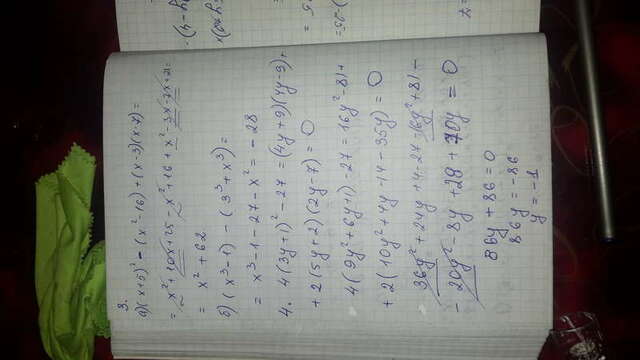 3.
а) (x+5)² - (x²-16) + (x-3)(x-7) =
= x² + 10x + 25 - x² + 16 + x² - 3x - 7x + 21 =
= x² + 62
б) (x³-1) - (3³+x³) =
= x³ - 1 - 27 - x² = - 28
4. 4(3y+1)² - 27 = (4y+9)(4y-9) +
+ 2(5y+2)(2y-7) = 0
4(9y²+6y+1) - 27 = 16y² - 81 +
+ 2(10y²+4y-14-35y) = 0
36y² + 24y + 4 - 27 - 16y² + 81 -
- 20y² - 8y + 28 + 70y = 0
86y + 86 = 0
86y = -86
y = -1